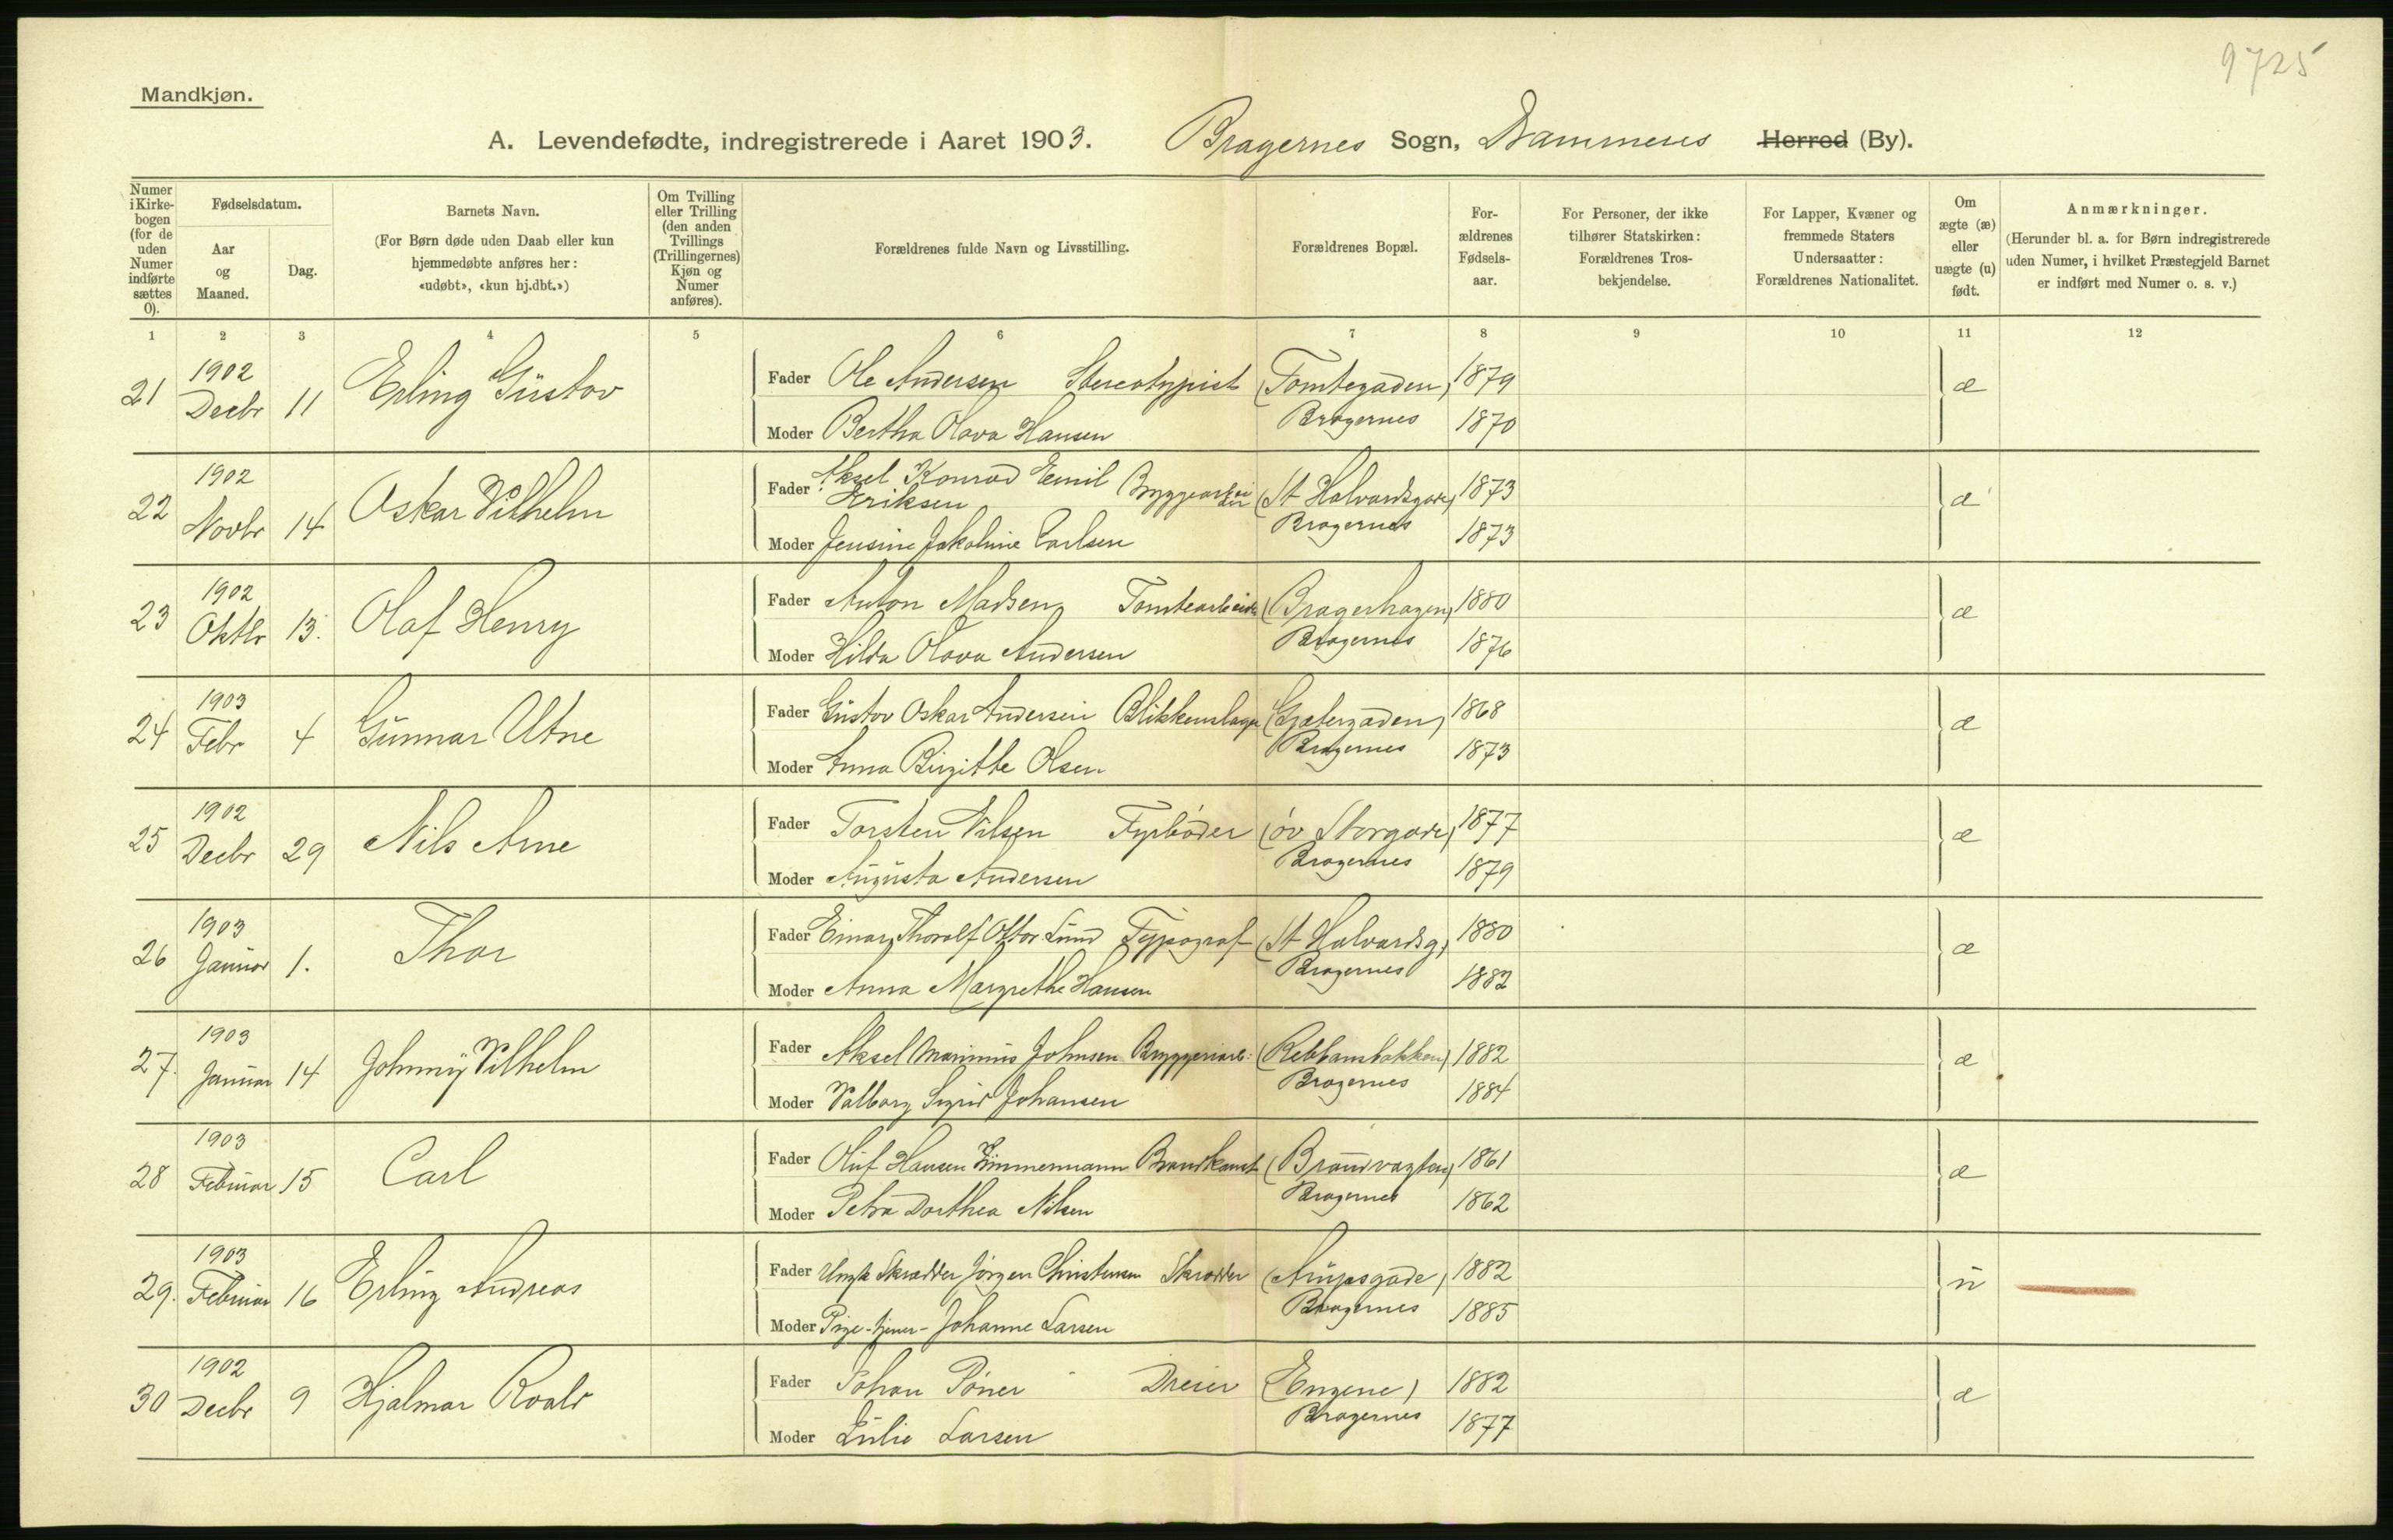 9725
Mandkjøn.
A. Levendefødte, indregistrerede i Aaret 1903. Bragernes Sogn, Drammens Herred (By).
Numer i Kirkebogen (for de uden Numer indførte sættes 0).
Fødselsdatum.
Aar og Maaned.
Dag.
Barnets Navn.
(For Børn døde uden Daab eller kun hjemmedøbte anføres her: «udøbt», «kun hj.dbt.»)
Om Tvilling eller Trilling (den anden Tvillings (Trillingernes) Kjøn og Numer anføres).
Forældrenes fulde Navn og Livsstilling.
Forældrenes Bopæl.
Forældrenes Fødselsaar.
For Personer, der ikke tilhører Statskirken: Forældrenes Trosbekjendelse.
For Lapper, Kvæner og fremmede Staters Undersaatter: Forældrenes Nationalitet.
Om ægte (æ) eller uægte (u) født.
Anmærkninger.
(Herunder bl. a. for Børn indregistrerede uden Numer, i hvilket Præstegjeld Barnet er indført med Numer o. s. v.)
1 2 3 4 5 6 7 8 9 10 11 12
21 1902 Decbr 11 Erling Gustav
Fader Ole Andersen Stereotypist (Tomtegaden) 1879 æ
Moder Bertha Olava Hansen Bragernes 1870
22 1902 Novbr 14 Oskar Vilhelm
Fader Aksel Konrad Emil Eriksen (St Halvardsgade) 1873 æ
Moder Jensine Jakobine Carlsen Bragernes 1873
23 1902 Oktbr 13. Olaf Henry
Fader Anton Madsen Tomtearbeider (Bragerhagen) 1880 æ
Moder Hilda Olava Andersen Bragernes 1876
24 1903 Febr 4 Gunnar Utne
Fader Gustav Oskar Andersen Blikkenslager (Gjetergaden) 1868 æ
Moder Anna Birgitte Olsen Bragernes 1873
25 1902 Decbr 29 Nils Arne
Fader Torsten Nilsen Fyrbøder (øv Storgade) 1877 æ
Moder Augusta Andersen Bragernes 1879
26 1903 Januar 1. Thor
Fader Einar Thoralf Ottar Lund Typograf (St Halvardsg) 1880 æ
Moder Anna Margrethe Hansen Bragernes 1882
27. 1903 Januar 14 Johnny Vilhelm
Fader Aksel Marinius Johnsen Bryggeriarb: (Rebbansbakken) 1882 æ
Moder Valborg Sigrid Johansen Bragernes 1884
28 1903 Februar 15 Carl
Fader Oluf Hansen Zimmermann Brandkonst (Brandvagten) 1861 æ
Moder Petra Dorthea Nilsen Bragernes 1862
29. 1903 Februar 16 Erling Andreas
Fader Ungk Skrædder Jørgen Christensen Skrædder (Arupsgade) 1882 u
Moder Pige - tjener - Johanne Larsen Bragernes 1885
30 1902 Decbr 9 Hjalmar Roald
Fader Johan Röner Dreier (Engene) 1882 æ
Moder Julie Larsen Bragernes 1877